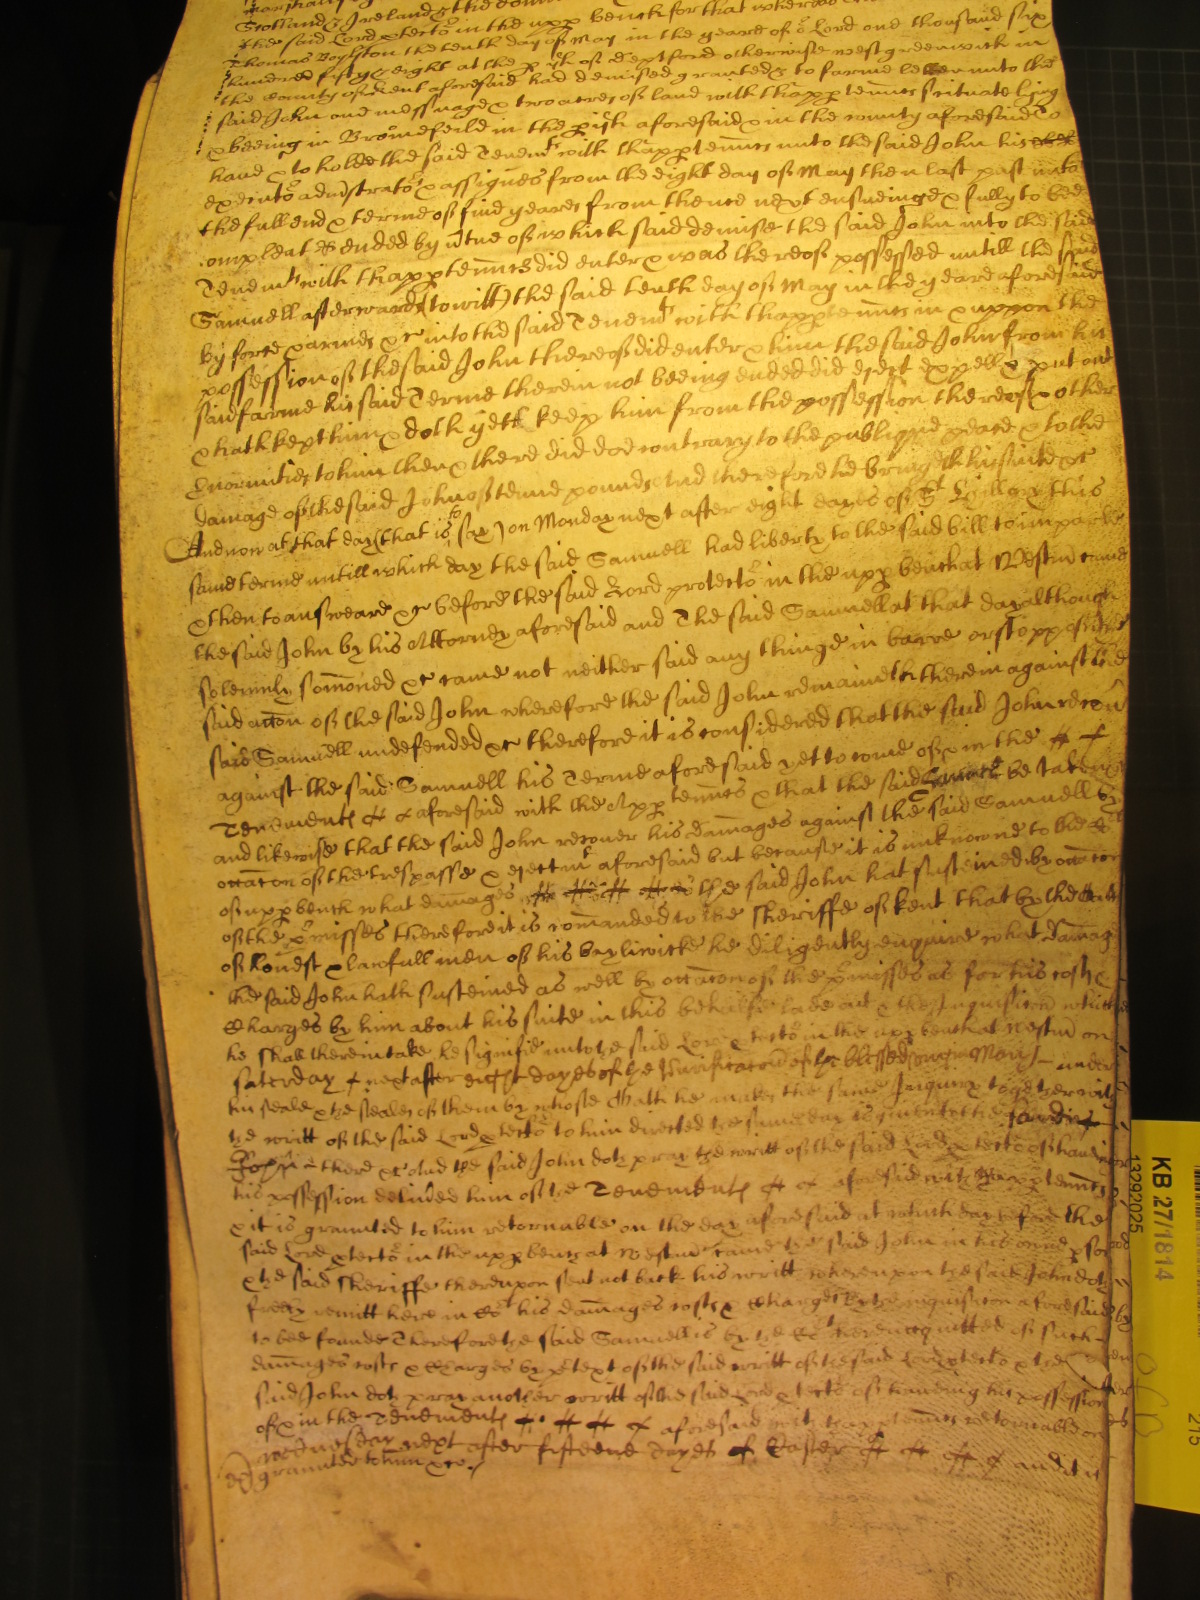 Scotland & Ireland & the
the said Lord ꝑtectoʳ in the upp bench for that whereas
Thomas Boylston the tenth day of May in the yeare of oʳ Lord one thousand six
hundred fifty & eight at the ꝑish of deptford otherwise westgreenwich in
the County of Kent aforesaid had demised graunted & to farme letten unto the
said John one messuage & two acres of land with thapp̱tennces scituate lying
& beeing in Bromefeild in the ꝑish aforesaid & in the county aforesaid To
have & to holde the said Tenemᵗˢ with thapp̱tennces unto the said John his
executoʳˢ administratoʳˢ & assignes from the eight day of May then last past unto
the full end & terme of five yeares from thence next ensueinge & fully to bee
compleat & ended by v̄tue of which said demise the said John into the said
Tenemᵗˢ with thapp̱tennces did enter & was thereof possessed untill the said
Samuell afterwards (to witt) the said tenth day of May in the yeare aforesaid
by force & armes &c into the said Tenemᵗˢ with thapp̱tennces in & uppon the
possession of the said John thereof did enter & him the said John from his
said farme his said Terme therein not beeing ended did eject expell & put out
& hath kept him & doth yett keep him from the possession thereof & other
Enormities to him then & there did doe contrary to the publique peace & to the
damage of the said John of tenne pounds And therefore he bringeth his suite &c
And now at that day (that is to say) on Monday next after eight dayes of Sᵗ Hillary this
same terme untill which day the said Samuell had liberty to the said bill to imparle
& then to answeare &c before the said Lord protectoʳ in the upp̱ bench at Westm̄ came
the said John by his Attorney aforesaid and The said Samuell at that day although
solemnly som̄oned &c came not neither said any thinge in barre or stopp of the
said acc̄on of the said John wherefore the said John remaineth therein against the
said Samuell undefended &c therefore it is considered that the said John recov̄
against the said Samuell his Terme aforesaid yet to come of & in the
Tenements aforesaid with the App̱tennces & that the said Samuell be taken &c
and likewise that the said John recover his damages against the said Samuell by
occac̄on of the trespasse & ejectmᵗ aforesaid but because it is unknowne to the Coʳᵗ
of upp̱ bench what damages the said John hath susteined by occac̄on
of the p̄misses therefore it is com̄anded to the Sheriffe of Kent that by the oath
of honest & lawfull men of his bayliwicke he diligently enquire what damag
the said John hath susteined as well by occac̄on of the p̄misses as for his costs &
Charges by him about his suite in this behalfe laid out & the Inquisic̄on which
he shall therein take he signifie unto the said Lord ꝑtectoʳ in the upp̱ bench at Westm̄ on
Saterday next after eight dayes of the Purificac̄on of the blessed virgin Mary under
his seale & the seales of them by whose Oath he makes the same Inquiry together with
the writt of the said Lord ꝑtectoʳ to him directed the same day is given to the said
John there &c And the said John doth pray the writt of the said Lord ꝑtectoʳ of haveing
his possession delivered him of the Tenements aforesaid with thapp̱tennces
& it is graunted to him retornable on the day aforesaid at which day before the
said Lord ꝑtectoʳ in the upp̱ bench at Westm̄ came the said John in his owne ꝑson
& the said Sheriffe thereupon sent not back his writt whereupon the said John doth
freely remitt here in Coʳᵗ his damages costs & Charges by the inquisic̄on aforesaid
to bee founde Therefore the said Samuell is by the Coʳᵗ here acquitted of such
damages costs & Charges by p̄text of the said writt of the said Lord ꝑtectoʳ & the
said John doth pray another writt of the said Lord ꝑtectoʳ of haveing his possession
of & in the Tenements aforesaid with thapp̱tennces retornable on
wednesday next after fifteene dayes of Easter and it is
graunted to him &c
KB 27/1814
13292025
275